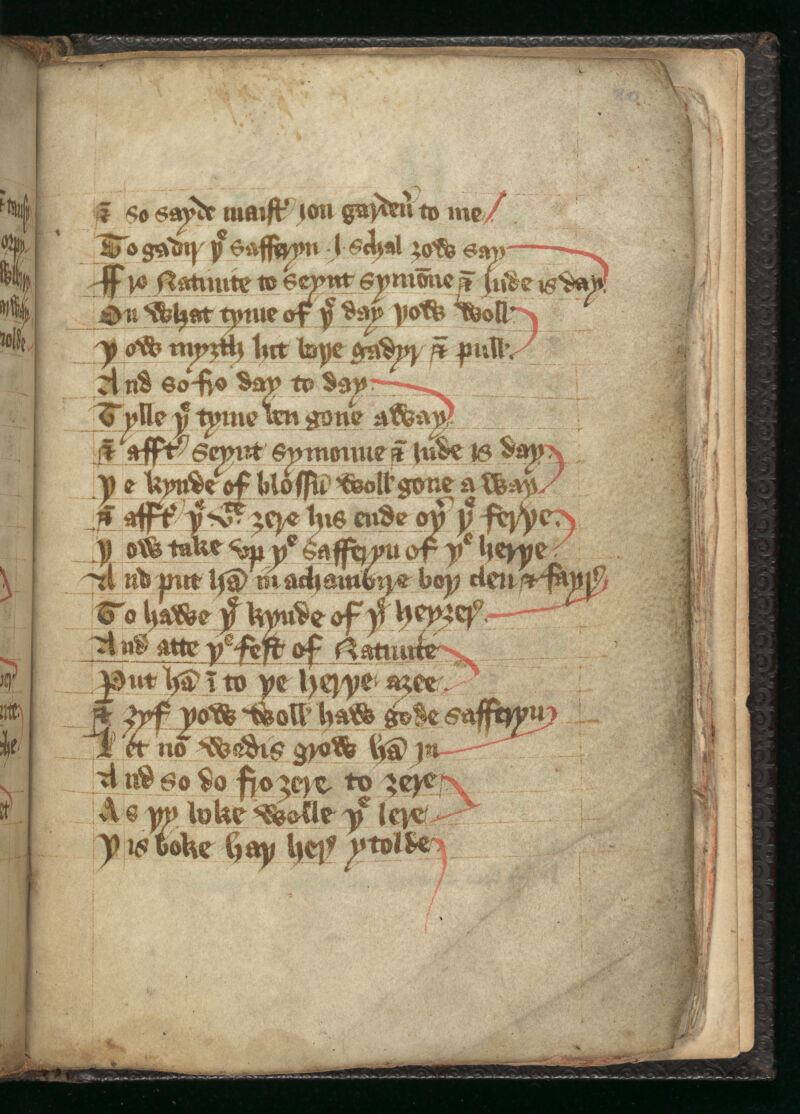 & so sayde maist' jon garden' to me
To gadyr yͤ saffryn I schal ȝow say
Ffro Natiuite to seynt symōne & jude is day
On what tyme of yͤ day yow woll
yow myȝth hit wye gadyr & pull
And so fro day to day
Tylle yͤ tyme ben gone away
& afft' seynt symonne & jude is day
ye kynde of blossū woll gone a way
& afft' yͤ ȝere his ende oy' yͤ ferye
yow take vp yͤ saffryn of yͤ herye
And put hā in achambyre boy clen & fayr'
To hawe yͤ kynde of yͤ heyȝer'
And atte yͤ fest of Natiuite
Put hā ī to ye herye aȝee
& ȝyf yow woll haw gode saffryn
Let nō wedis grow hā jn
And so do fro ȝere to ȝere
As yy loke wolle yͤ lere
yis boke hay her' ytolde